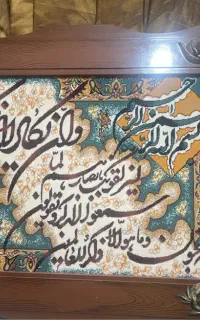 بسم الله الرحمن الرحیم
وان یکاد
لیزلقونک بابصارهم لما
سمعوا الذکر و یقولون
وما هو الا
ذکر للعالمین